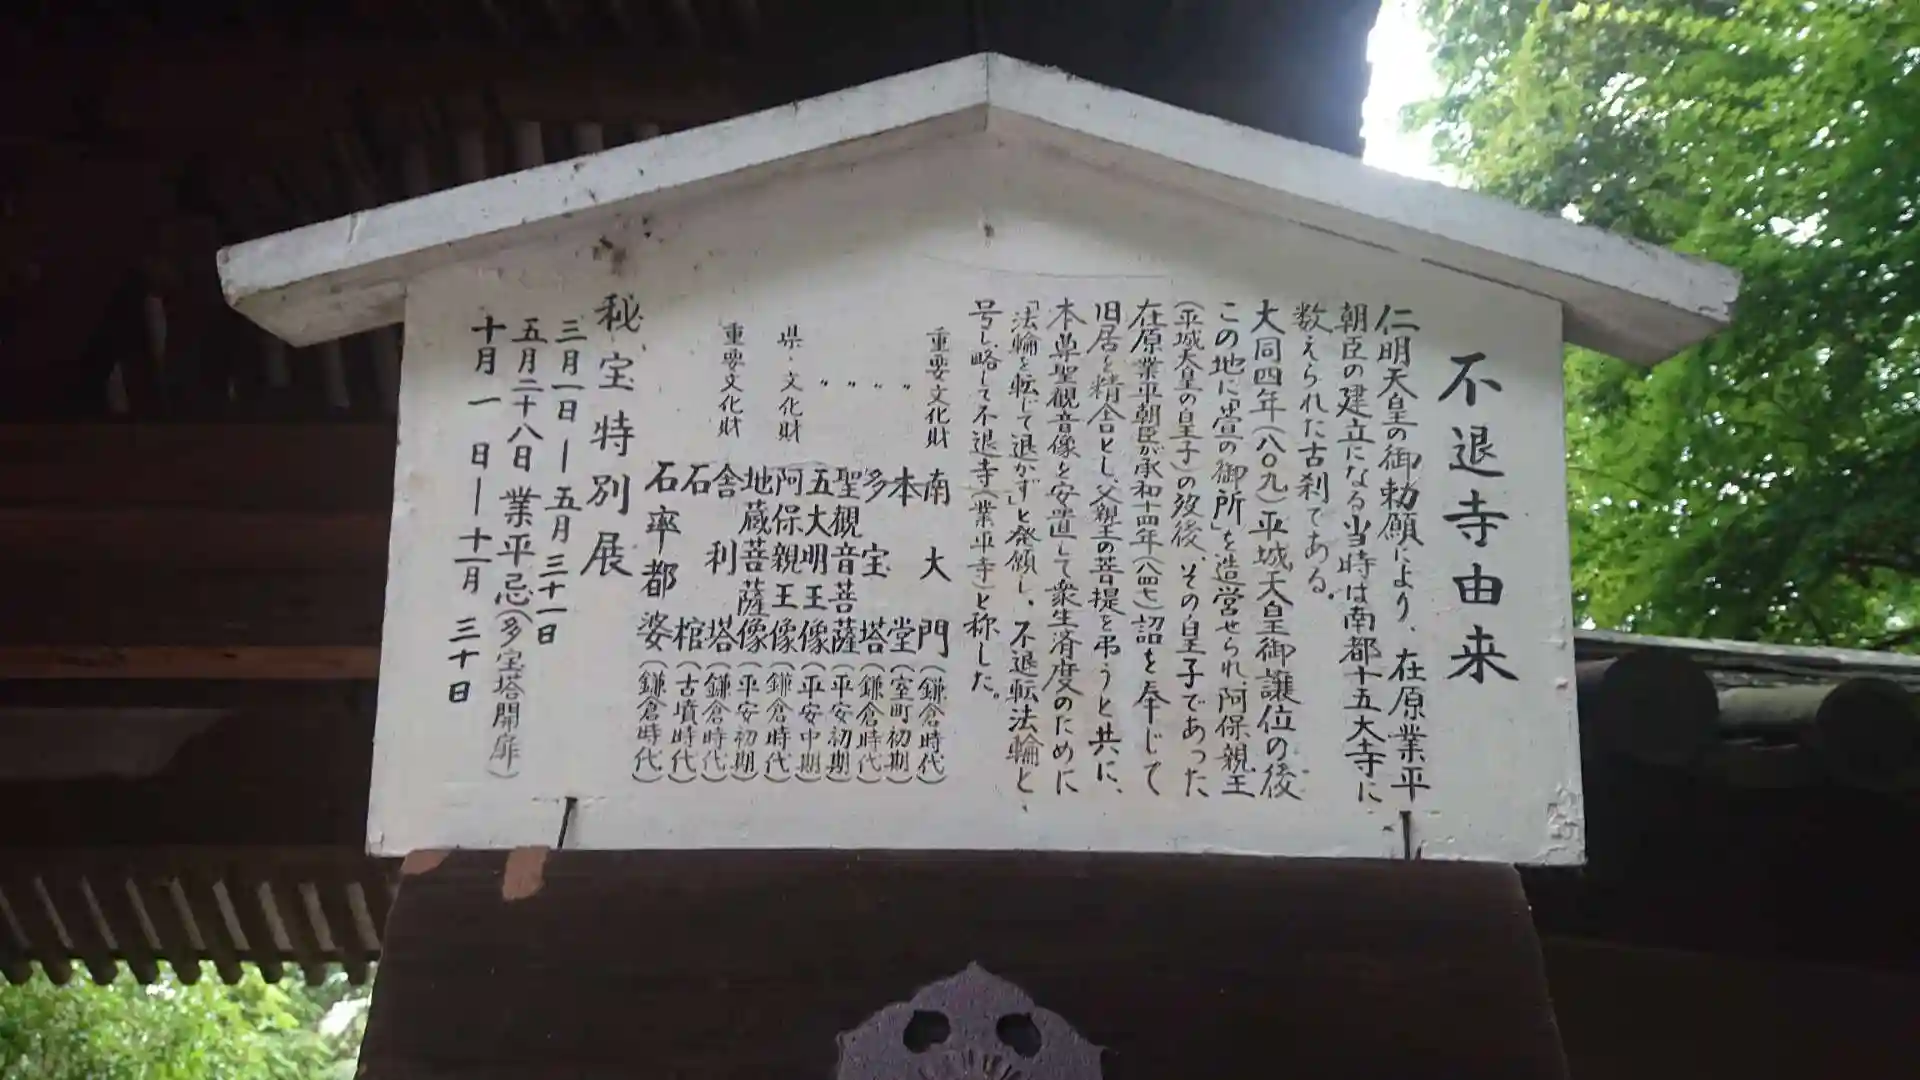 不退寺由来
仁明天皇の御勅願により、在原業平
朝臣の建立になる当時は南都十五大寺に
数えられた古刹である。
大同四年(八〇九)平城天皇御譲位の後
この地に「萱の御所」を造営せられ阿保親王
(平城天皇の皇子)の歿後、その皇子であった
在原業平朝臣が承和十四年(八四七)詔を奉じて
旧居を精舎とし、父親王の菩提を弔うと共に、
本尊聖観音像を安置して衆生済度のために
「法輪を転じて退かず」と発願し、不退転法輪と、
号し略して不退寺(業平寺)と称した。
重要文化財 南大門(鎌倉時代)
〃 本堂(室町初期)
〃 多宝塔(鎌倉時代)
〃 聖観音菩薩(平安初期)
〃 五大明王像(平安中期)
県・文化財 阿保親王像(鎌倉時代)
地蔵菩薩像(平安初期)
重要文化財 舎利塔(鎌倉時代)
石棺(古墳時代)
石率都婆(鎌倉時代)
秘宝特別展
三月一日―五月三十一日
五月二十八日 業平忌(多宝塔開扉)
十月一日―十一月三十日